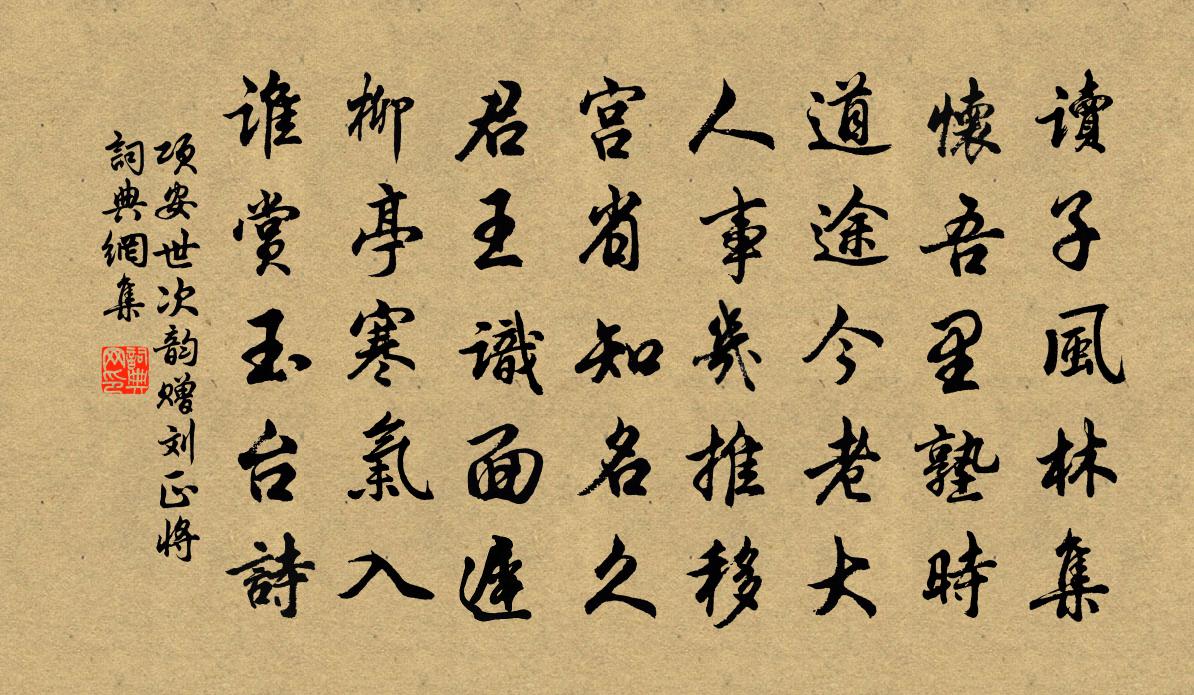 讀子風林集
懷吾里塾時
道途今老大
人事幾推移
宫省知名久
君王識面遲
柳亭寒氣入
谁賞玉台詩
项安世次韵赠刘正将
詞典網集
詞典
网印